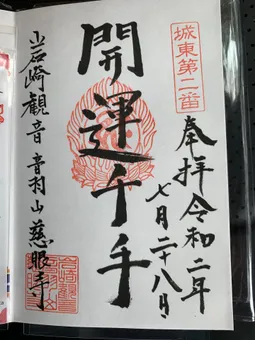 城東第二番
奉拝 令和二年
七月二十八日
開運千手
岩崎観音 音羽山 慈眼寺